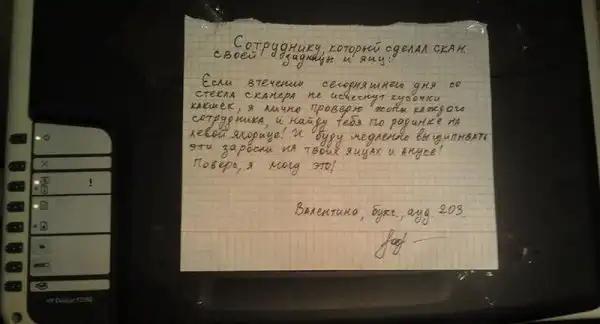 Сотруднику, который сделал скан
своей задницы и яиц:
Если втечении сегодняшнего дня со
стекла сканера не исчезнут кусочки
какшек, я лично проверю жопы каждого
сотрудника, и найду тебя по родинке на
левой ягодице! И буду медленно выщипывать
эти заросли на твоих яйцах и анусе!
Поверь, я могу это!
Валентина, бухг., ауд. 203